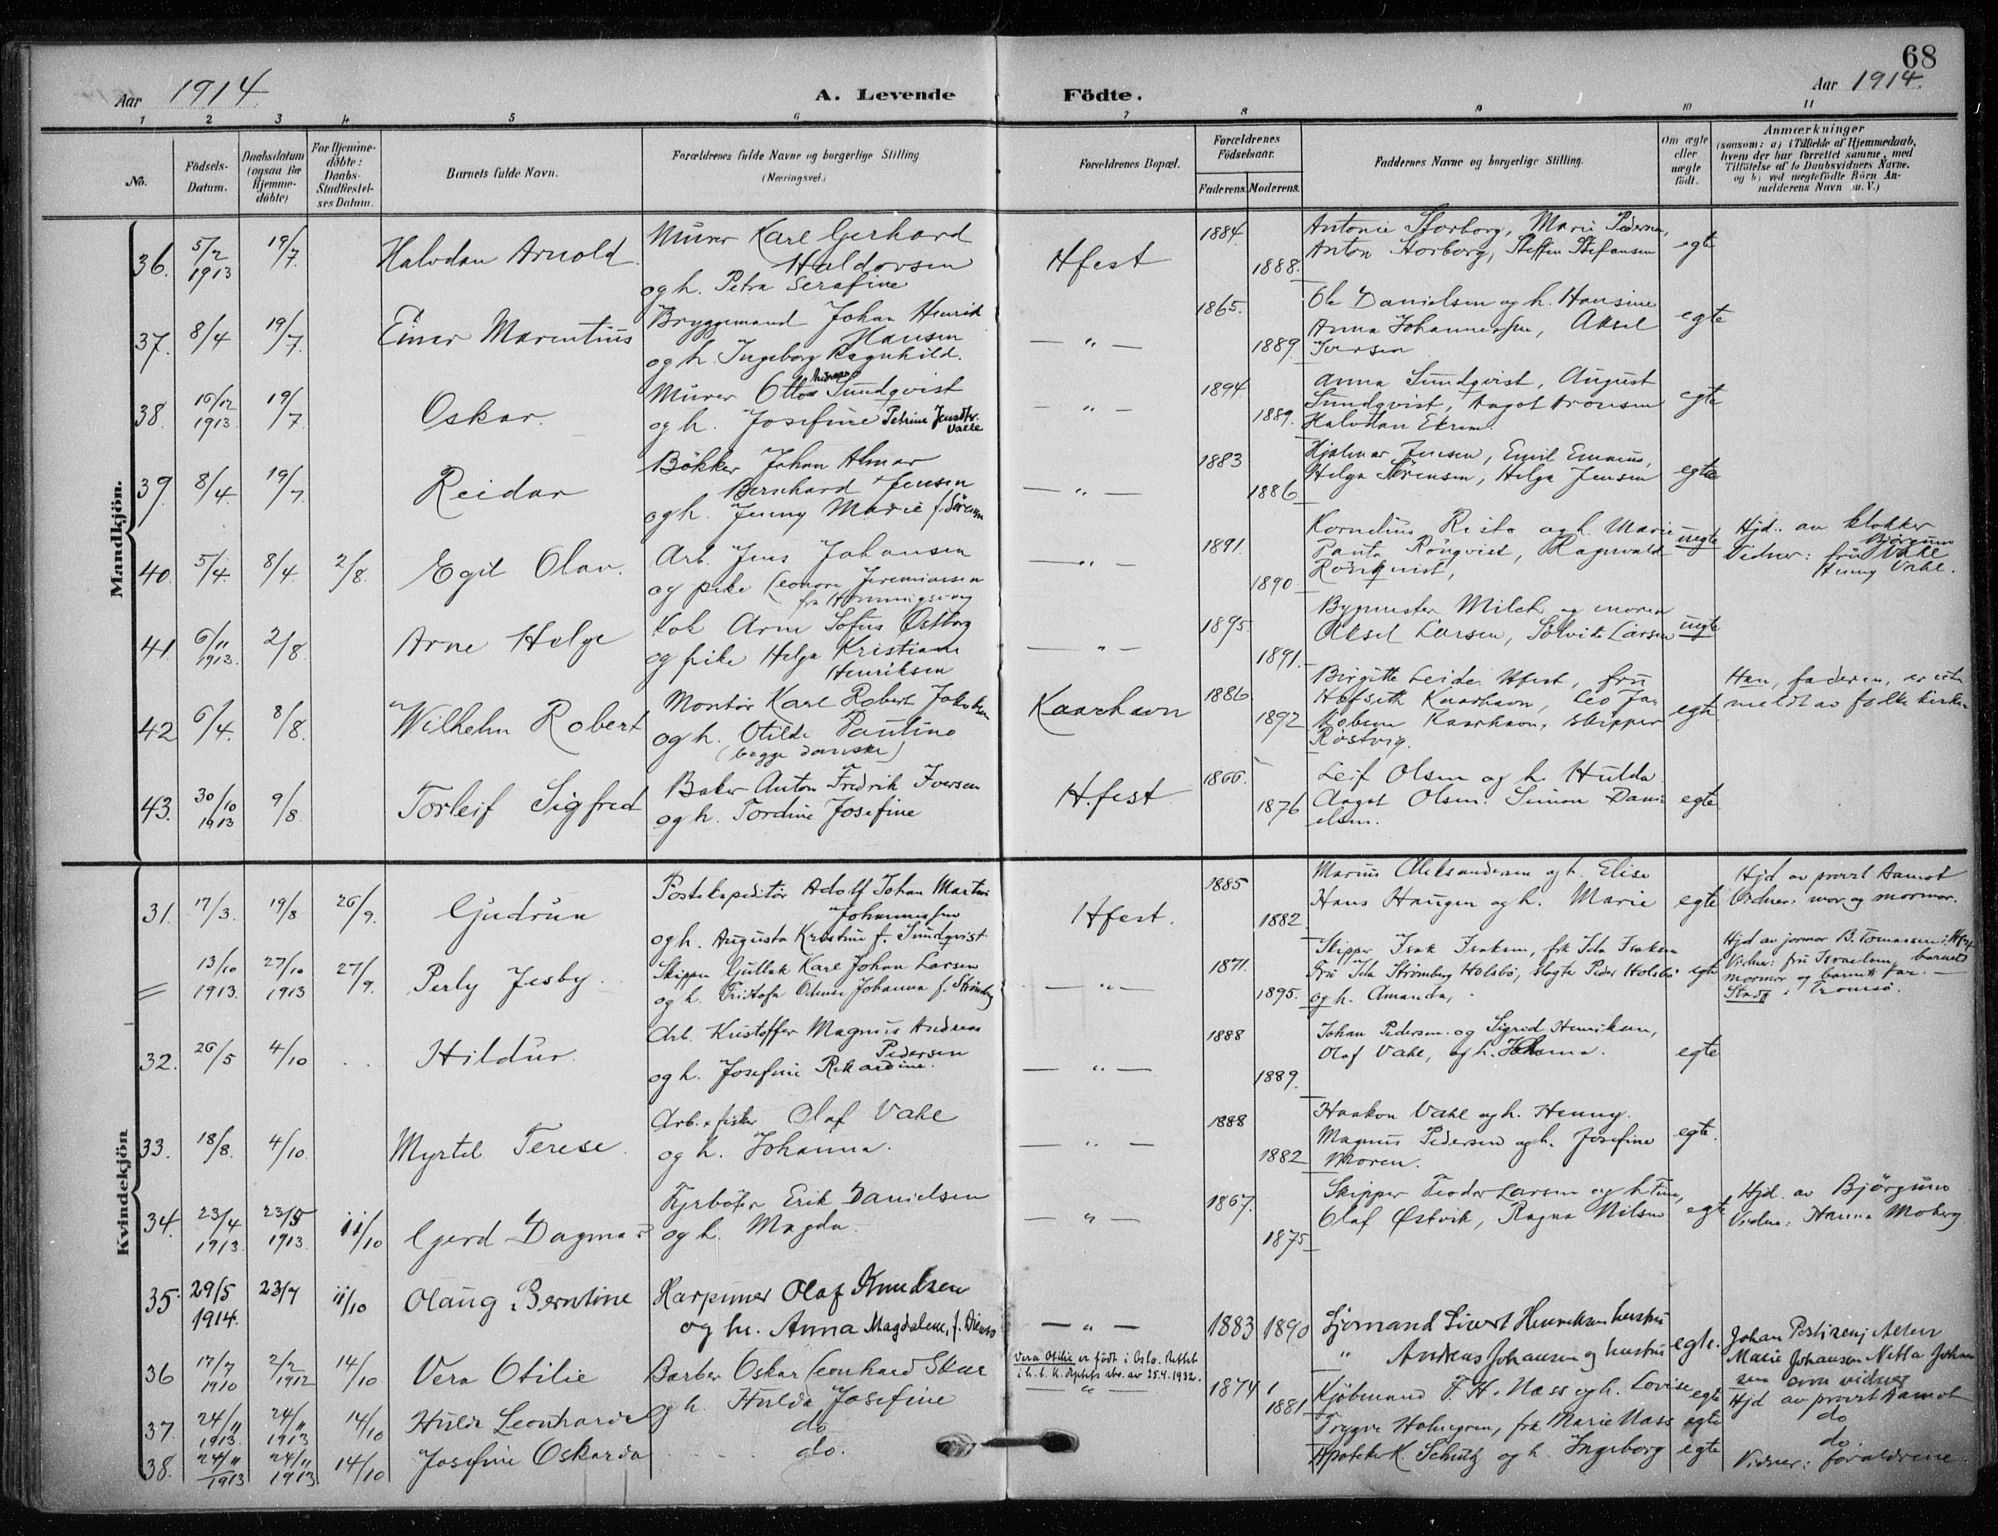 68
Aar 1914. A. Levende Födte. Aar 1914.
1 2 3 4 5 6 7 8 9 10 11
No.
Födsels-Datum.
Daabsdatum (ogsaa for Hjemmedöbte)
For Hjemmedöbte: Daabs-Stadfæstelses Datum.
Barnets fulde Navn.
Forældrenes fulde Navne og borgerlige Stilling.
(Næringsvei.)
Forældrenes Bopæl.
Forældrenes Födselsaar.
Faderens. Moderens.
Faddernes Navne og borgerlige Stilling.
Om ægte eller uægte födt.
Anmærkninger
(saasom: a) i Tilfælde af Hjemmedaab, hvem der har forrettet samme, med Tilföielse af to Daabsvidners Navne. og b) ved uægtefödte Börn Anmelderens Navn m. V.)
Mandkjön.
36. 5/2 1913 19/7. Halvdan Arnold. Murer Karl Gerhard Haldorsen og h. Petra Serafine Hfest 1884. 1888. Antonie Storborg, Marie Pedersen, Anton Storborg, Steffen Stefansen egte
37. 8/4 19/7. Einar Marentius Bryggemand Johan Henrik Hansen og h. Ingeborg Ragnhild. — " — 1865. 1889. Ole Danielsen og h. Hansine Anna Johannessen, Aksel Iversen. egte
38. 16/12 1913. 19/7. Oskar. Murer Otto Sundqvist og h. Josefine Petrine Jensdtr. Valle — " — 1894. 1889. Anna Sundqvist, August Sundqvist, Dagot Aronsen Halvdan Ekrem. egte
39. 8/4 19/7. Reidar Bökker Johan Almar Bernhard Jensen og h. Jenny Marie f. Sörensen — " — 1883 1886. Hjalmar Jensen, Emil Emaus, Helga Sörensen, Helga Jensen egte
40. 5/4. 8/4. 2/8. Egil Olav. Arb. Jens Johansen og pike Leonore Jeremiassen fra Honningsvaag — " — 1891. 1890. Kornelius Risto og h. Marie Rönqvist, Ragnvald Rönqvist, uegte Hjd. av klokker Björgum Vidner: fru Vahl Henny Vahl.
41. 6/11 1913. 2/8. Arne Helge Kok Arne Sofus Østberg og pike Helga Kristiane Henriksen — " — 1895. 1891. Milch og moren Aksel Larsen, Solveig Larsen uegte
42 6/4. 8/8. Wilhelm Robert Montör Karl Robert Jakobsen og h. Otilde Pauline (begge danske) Kaarhavn 1886 1892 Birgitte Leide Hfest, fru Hofseth Kaarhavn, Leo Jakobsen Kaarhavn, skipper Röstvig. egte Han, faderen, er utmeldt av folkekirken
43. 30/10 1913 9/8 Torleif Sigfred Baker Anton Fredrik Iversen og h. Tordine Josefine H.fest 1866. 1876 Leif Olsen og h. Hulda Aagot Olsen. Simon Danielsen. egte
Kvindekjön
31. 17/3. 19/8 26/9. Gudrun Postekspeditör Adolf Johan Martin Johannessen og h. Augusta Kristine f. Sundqvist Hfest. 1885 1882. Marius Aleksandersen og h. Elise Hans Haugen og h. Marie egte Hjd av provst Aamot Vidner: mor og mormor.
= 13/10 1913. 27/10 1913 27/9. Perly Jesby. Skipper Gullak Karl Johan Larsen og h. Tristofa Odine Johanna f. Strömberg — " — 1871. 1895. Skipper Isak Isaksen, frk Ida Isaksen Fru Ida Strömberg Holsbö, slagter Peder Holsbö og h. Amanda, egte Hjd av jormor B. Tomassen, Hfest Vidner: fru Israelsen, barnets mormor og barnets far. — Stadf i Tromsö.
32. 26/5 4/10 Hildur. Arb. Kristoffer Magnus Andreas Pedersen og h. Josefine Rikardine. — " — 1888 1889. Johan Pedersen og Sigrid Henriksen, Olaf Vahl, og h. Johanna. egte
33. 18/8. 4/10. Myrtel Terese. Arb. & fisker Olaf Vahl og h. Johanna. — " — 1888 1882 Haakon Vahl og h. Henny. Magnus Pedersen og h. Josefine Moren. egte.
34. 23/4 1913. 23/5 1913. 11/10 Gerd Dagmar Fyrböter Erik Danielsen og h. Magda. — " — 1867. 1875 Skipper Teodor Larsen og h. Tina, Olaf Østvik, Ragna Nilsen egte Hjd. av Björgum Vidner: Hanna Moberg
35. 29/5 1914. 23/7 11/10 Olaug Berntine Harpuner Olaf Knudsen og hu. Anna Magdalene, f. — " — 1883 1890 Sjömand Sivert Henriksen hustru " Andreas Johansen og hustru egte. Johan Marie Johansen Netta Johansen som vidner
36 17/7 1910 2/2 1912 14/10 Vera Otilie Barber Oskar Leonhard Skar og h. Hulda Josefine Vera Otilie er födt i Oslo. Rettet i h. t. K. dptets skr. av 25.4.1932. — " — 1874 1881 Kjöbmand F. H. Næss og h. Lovise egte Hjd av provst Aamot
37. 24/11 1913. 24/11 1913 14/10 Hulda Leonharda do Trygve Holmgren, frk Marie Næss egte do
38. 24/11 1913 24/11 1913. 14/10 Josefine Oskarda do. Apoteker K. Schulz og h. Ingeborg egte do. Vidner: foraldrene